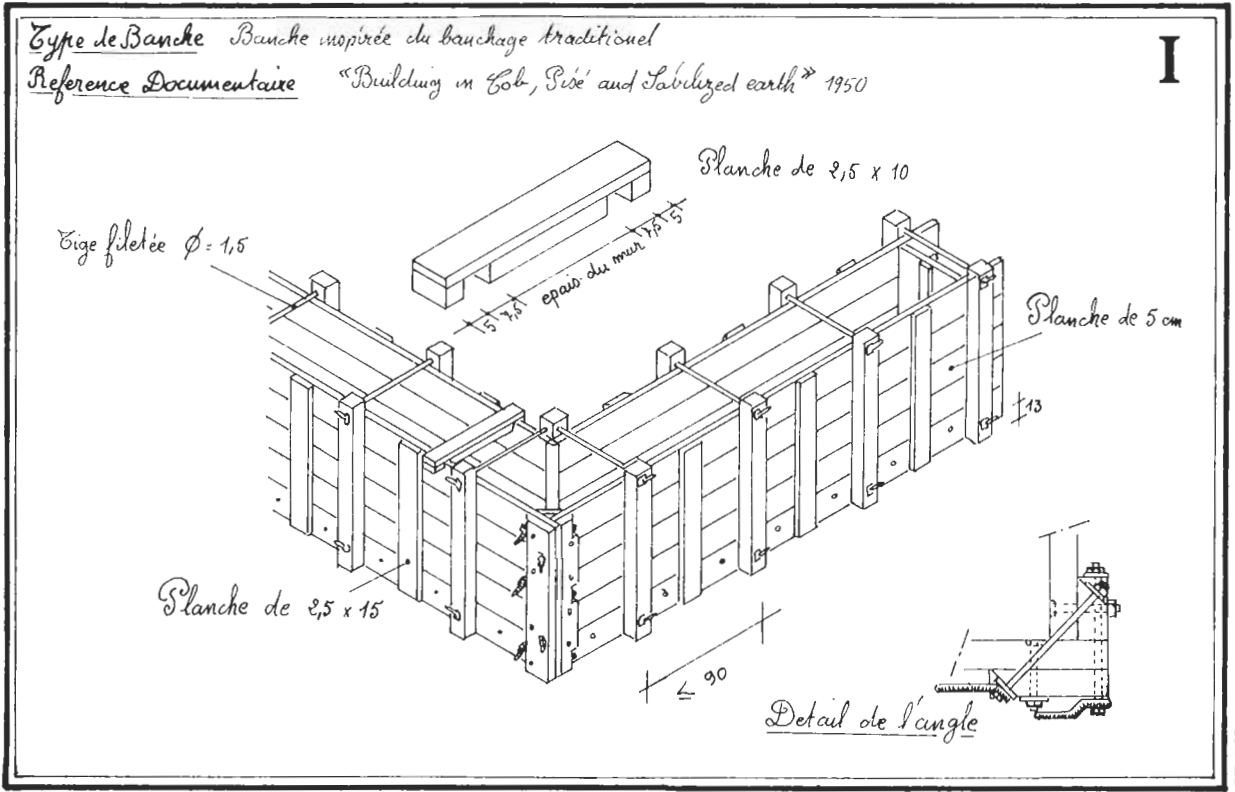 Type de Banche Banche inspirée du banchage traditionel
I
Reference Documentaire "Building in Cob, Pisé and Stabilized earth" 1950
Planche de 2,5 x 10
Tige filetée Ø = 1,5
5 7,5 epais. du mur 7,5 5
Planche de 5 cm
13
Planche de 2,5 x 15
≤ 90
Detail de l'angle